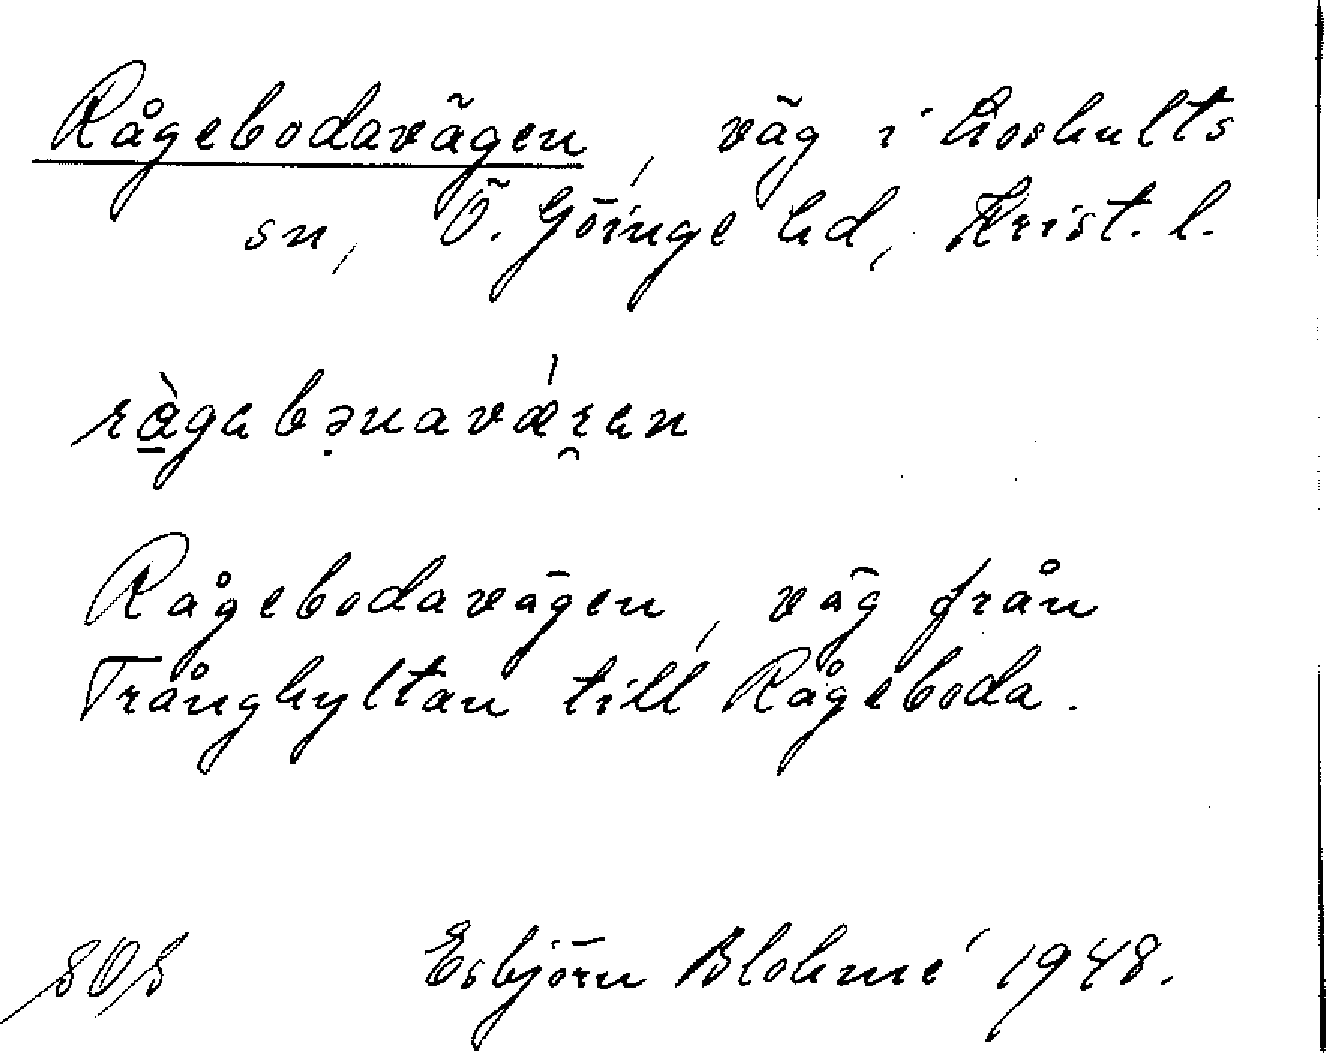 Rågebodavägen, väg i Loshults
sn, Ö. Göinge hd, Krist. l.
rågabənavǽran
Rågebodavägen, väg från
Trånghyltan till Rågeboda.
Esbjörn Blohmé 1948.